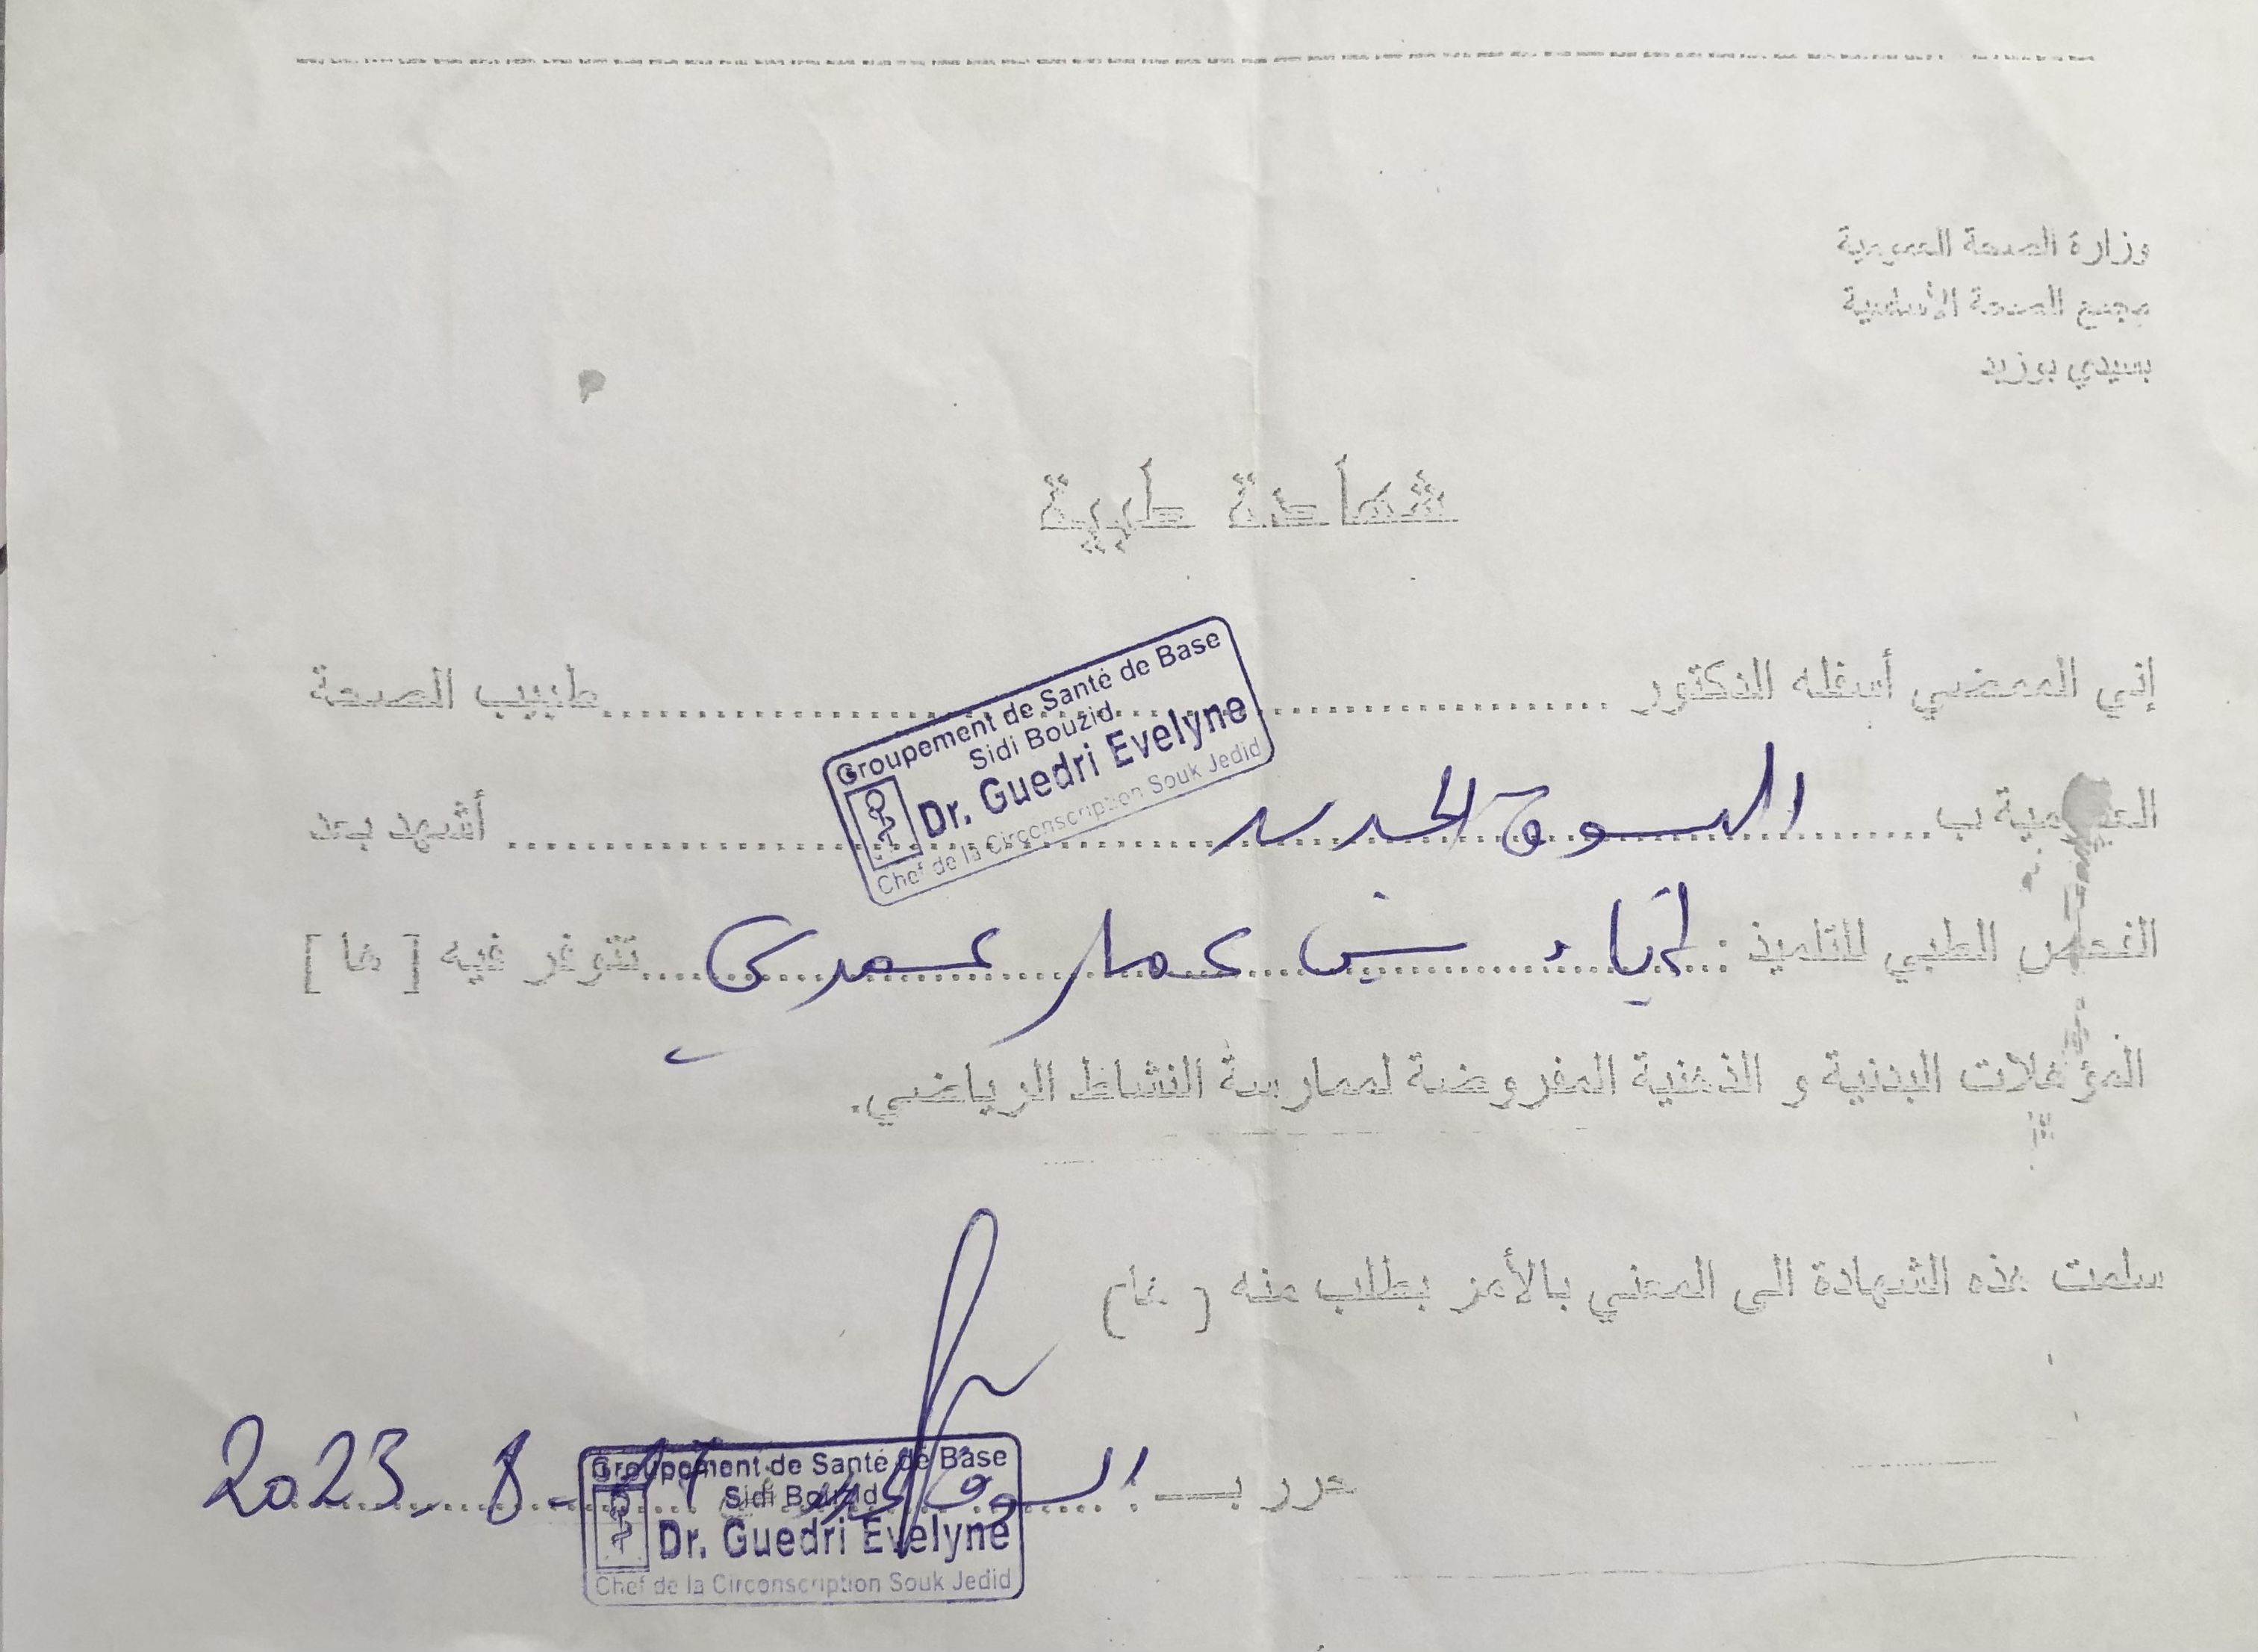 وزارة الصحة العمومية
مجمع الصحة الأساسية
بسيدي بوزيد
شهادة طبية
إني الممضي أسفله الدكتور ........ طبيب الصحة
Groupement de Santé de Base
Sidi Bouzid
Dr. Guedri Evelyne
Chef de la Circonscription Souk Jedid
العمومية ب........ السوق الجديد ........ أشهد بعد
الفحص الطبي للتلميذ : بن عمار عمدي ........ تتوفر فيه [ ها ]
المؤهلات البدنية و الذهنية المفروضة لممارسة النشاط الرياضي.
سلمت هذه الشهادة الى المعني بالأمر بطلب منه ( ها )
حرر بـ : السوق الجديد 2023 - 8 -
Groupement de Santé de Base
Sidi Bouzid
Dr. Guedri Evelyne
Chef de la Circonscription Souk Jedid